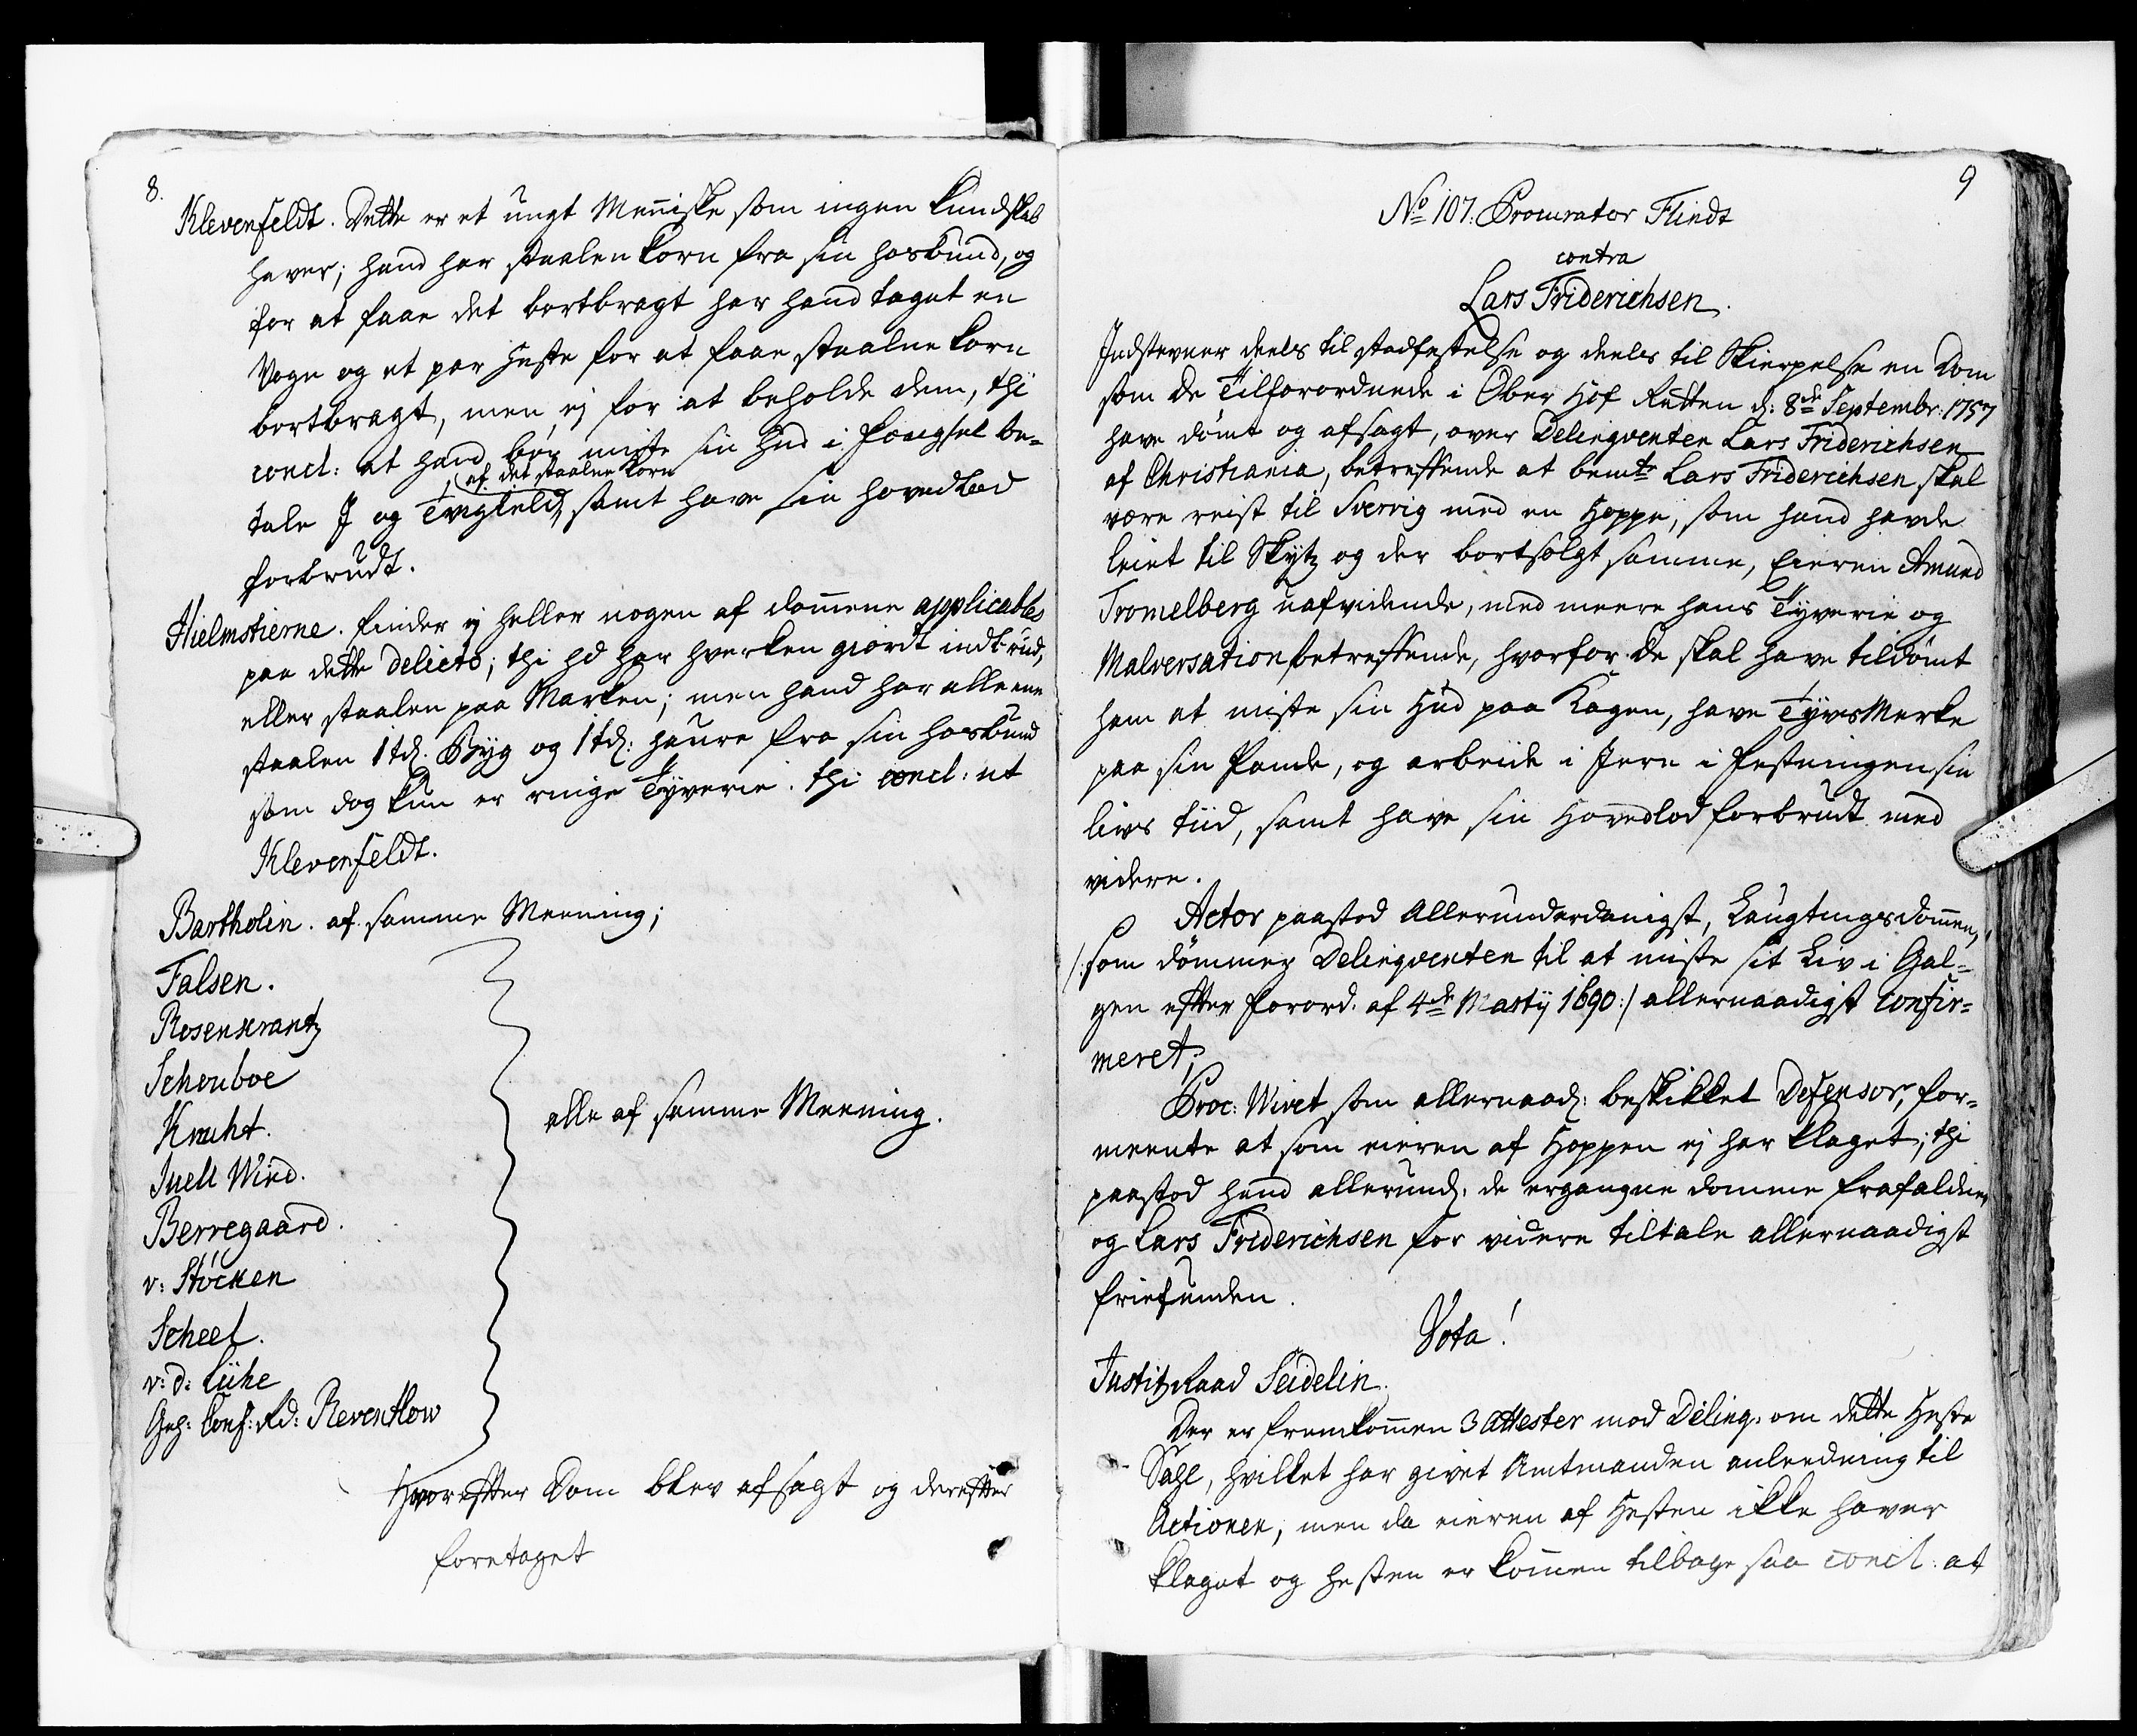 8.
Klevenfeldt. Dette er et ungt Menniske som ingen kundskab
haver; hand har staalen korn fra sin hosbund, og
for at faae det bortbragt har hand taget en
Vogn og et par Heste for at faae staalne korn
bortbragt, men ej for at beholde dem, thi
concl: at hand bør miste sin Hud i Fængsel be-
af det staalne Korn
tale I og Tvigield, samt have sin hovedlod
forbrudt.
Hielmstierne. finder ej heller nogen af dommene applicables
paa dette delicto; thi hd har hverken giordt indbrud,
eller staalen paa Marken; men hand har alleene
staalen 1 td. Byg og 1 td: haure fra sin hosbund
som dog kun er ringe Tyverie. thi concl: ut
Klevenfeldt.
Bartholin. af samme Meening;
Falsen.
Rosenkrantz
Schouboe
Knuht.
Juell Wind.
Berregaard.
v: Stöcken
Scheel.
v: d: Lühe
Geh: Conf: Rd: Reventlow
alle af samme Meening.
Hvorefter Dom blev afsagt og derefter
foretaget
9
No 107. Procurator Flindt
contra
Lars Friderichsen.
Indstevner deels til stadfestelse og deels til Skierpelse en Dom
som de Tilforordnede i Ober Hof Retten d: 8de Septembr: 1757
have dömt og afsagt, over Delinqventen Lars Friderichsen
af Christiania, betreffende at bemte Lars Friderichsen skal
være reist til Sverrig med en Hoppe, som hand havde
leiet til Skytz og der bortsolgt samme, Eieren Amund
Tromelberg uafvidende, med meere hans Tyverie og
Malversation betreffende, hvorfor de skal have tildömt
ham at miste sin Hud paa Kagen, have Tyvs Merke
paa sin Pande, og arbeide i Jern i Festningen sin
livs tiid, samt have sin Hovedlod forbrudt med
videre.
Actor paastod Allerunderdanigst, Laugtingsdommen,
/: som dömmer Delinqventen til at miste sit Liv i Gal-
gen efter Forord. af 4de Martij 1690 :/ allernaadigst confir-
meret;
Proc: Wivet som allernaad: beskikket Defensor, for-
meente at som eieren af Hoppen ej har klaget; thi
paastod hand allerund: de ergangne domme frafalden
og Lars Friderichsen for videre tiltale allernaadigst
friefunden.
Vota!
Justitz Raad Seidelin.
Der er fremkommen 3 Attester mod Delinq: om dette Heste
Sahl, hvilket har givet Amtmanden anleedning til
Actionen, men da eieren af Hesten ikke haver
klaget og hesten er kommen tilbage saa concl: at